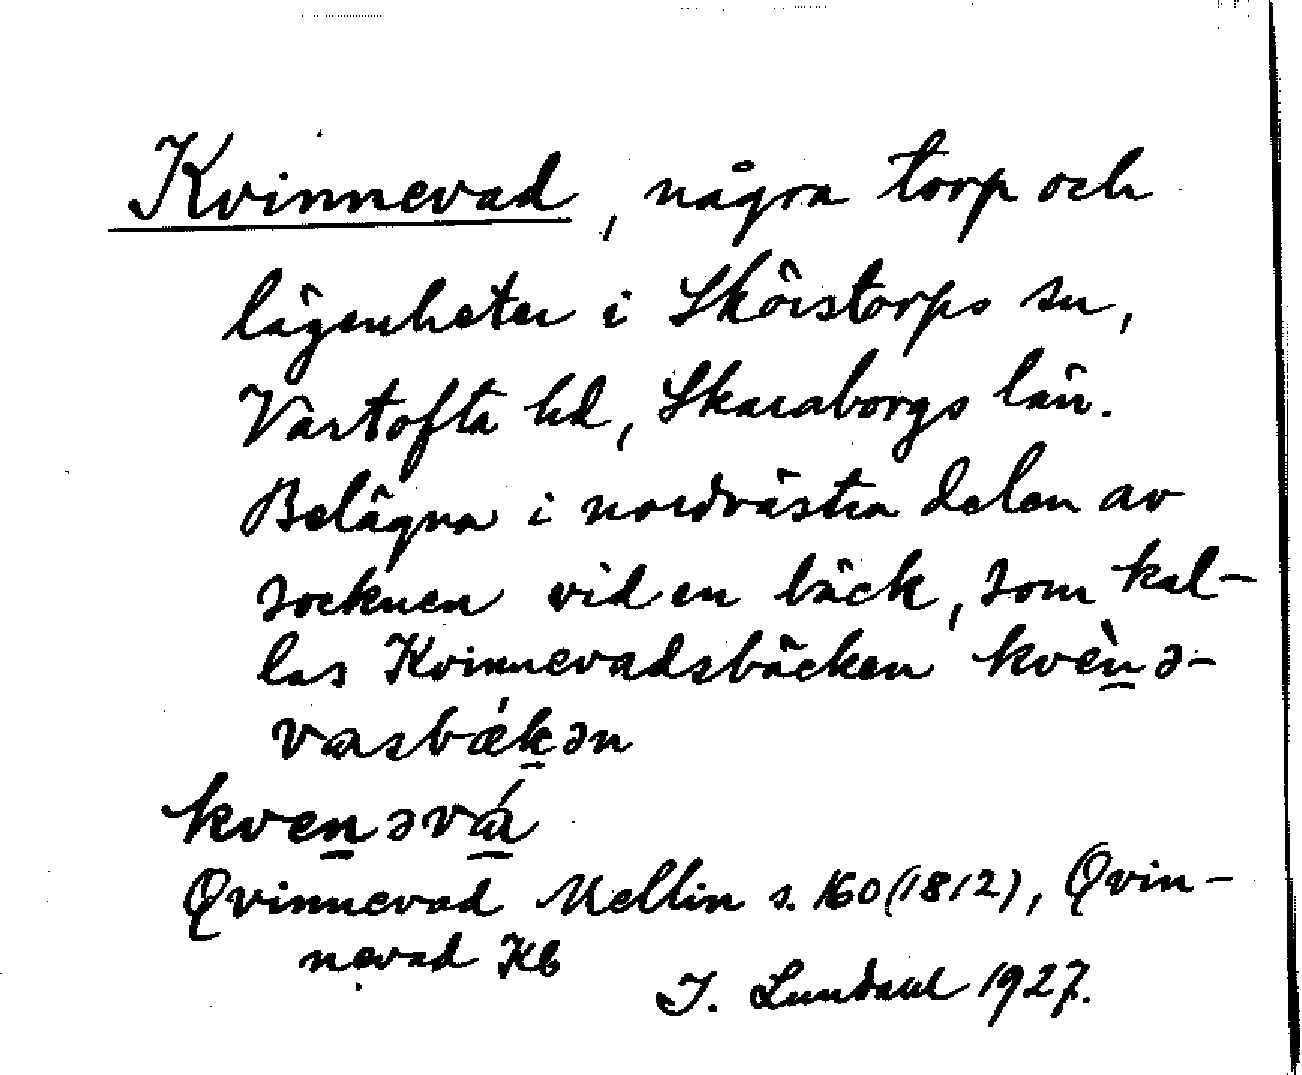 Kvinnevad, några torp och
lägenheter i Skörstorps sn,
Vartofta hd, Skaraborgs län.
Belägna i nordvästra delen av
socknen vid en bäck, som kal-
las Kvinnevadsbäcken kvèn̲ə-
vɑsbǽk̲ən
kven̲əvɑ̲́
Qvinnevad Mellin s. 160 (1812), Qvin-
nevad Kb
I. Lundahl 1927.